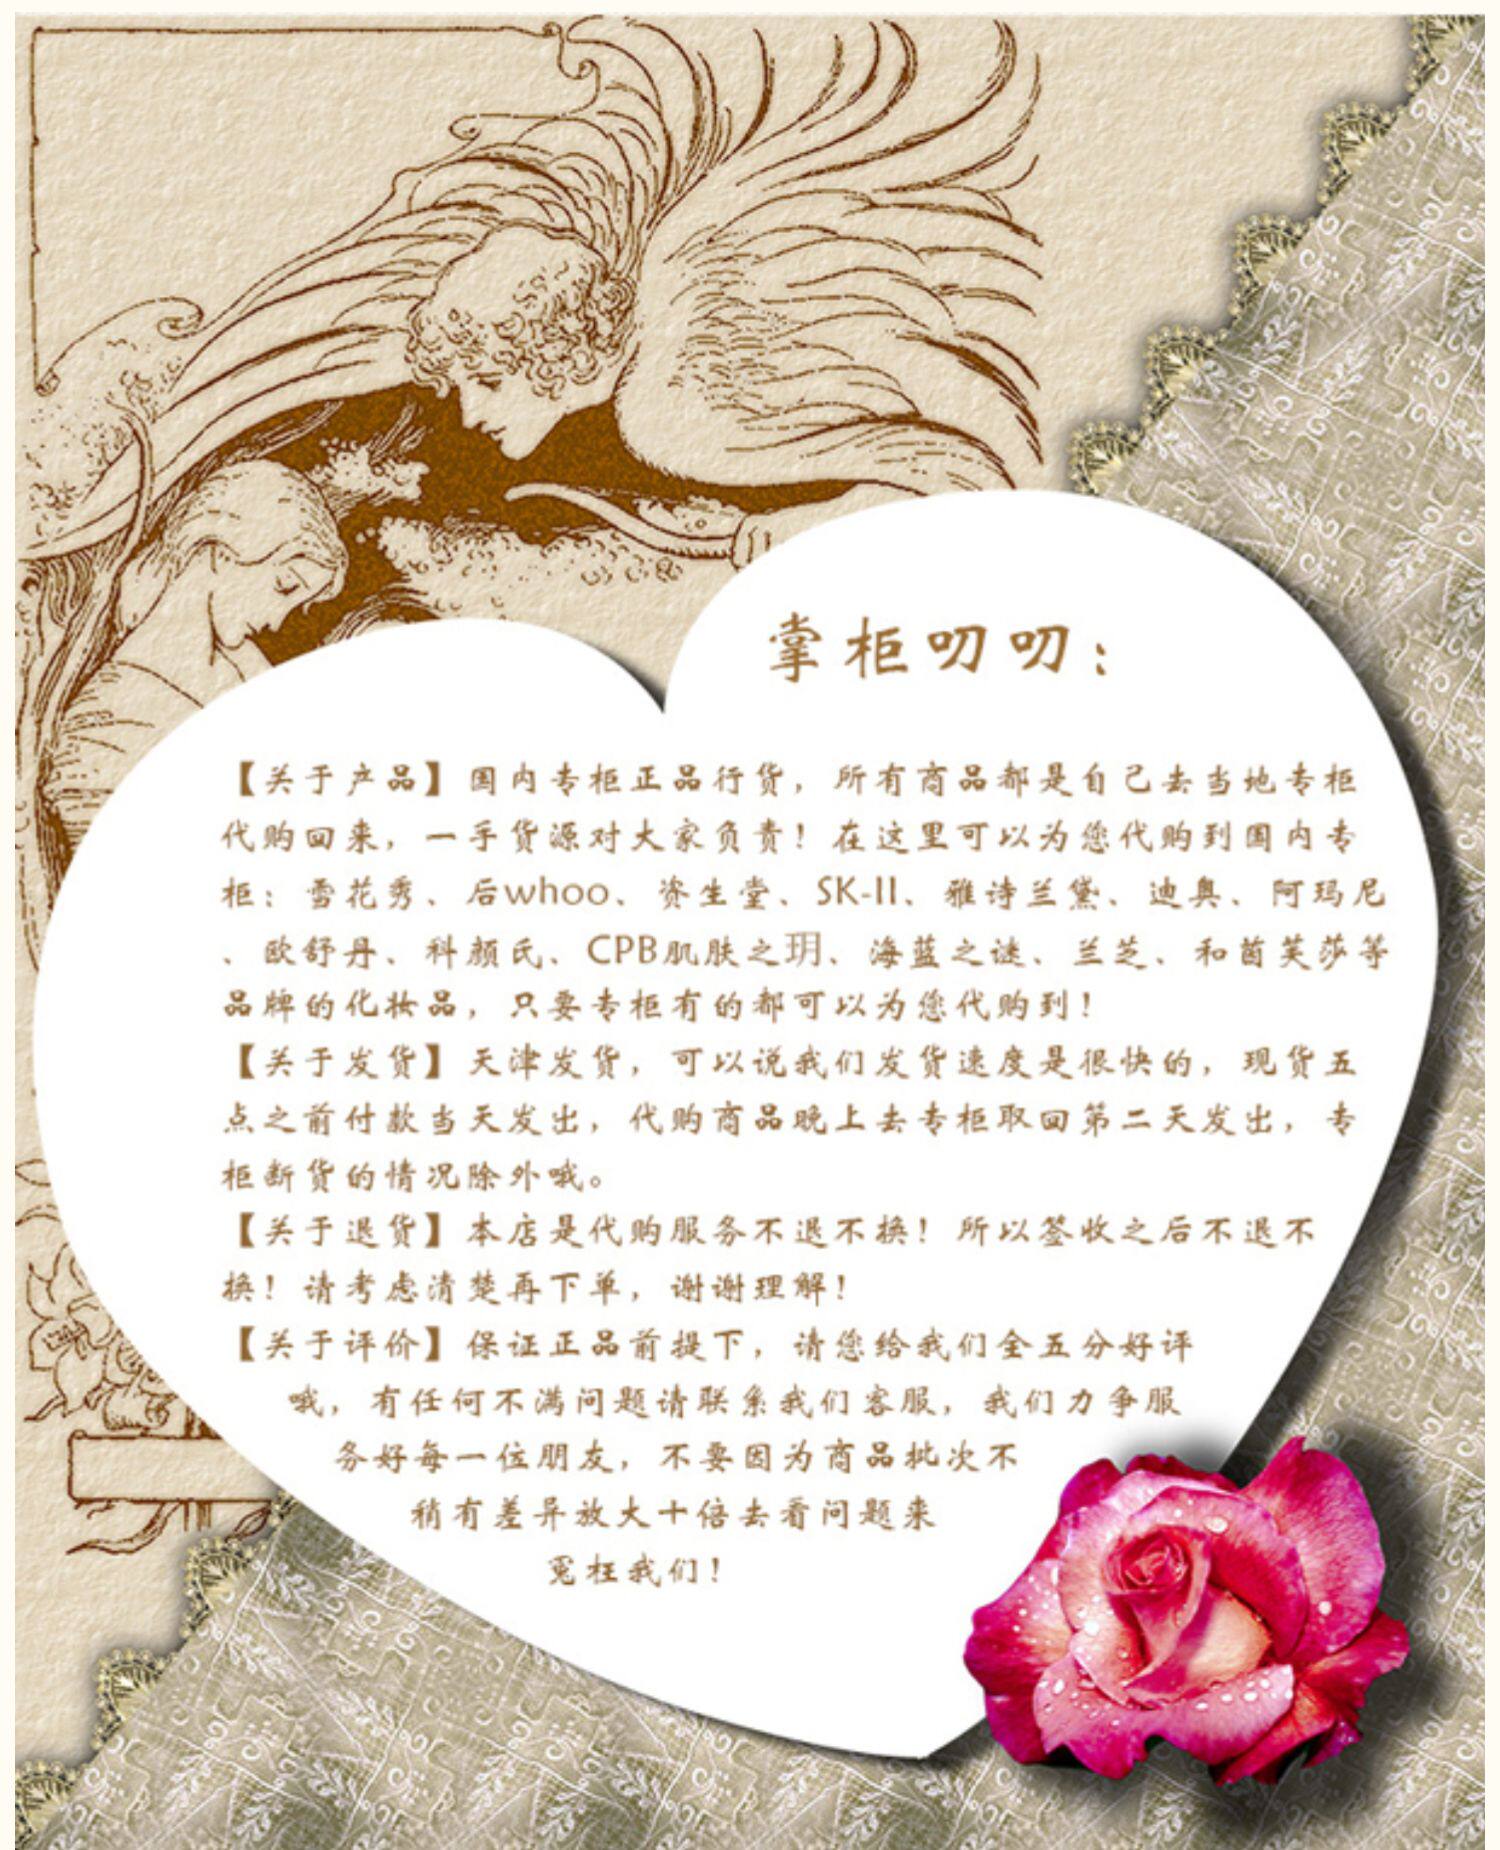 掌柜叨叨：
【关于产品】国内专柜正品行货，所有商品都是自己去当地专柜
代购回来，一手货源对大家负责！在这里可以为您代购到国内专
柜：雪花秀、后whoo、资生堂、SK-II、雅诗兰黛、迪奥、阿玛尼
、欧舒丹、科颜氏、CPB肌肤之玥、海蓝之谜、兰芝、和茵芙莎等
品牌的化妆品，只要专柜有的都可以为您代购到！
【关于发货】天津发货，可以说我们发货速度是很快的，现货五
点之前付款当天发出，代购商品晚上去专柜取回第二天发出，专
柜断货的情况除外哦。
【关于退货】本店是代购服务不退不换！所以签收之后不退不
换！请考虑清楚再下单，谢谢理解！
【关于评价】保证正品前提下，请您给我们全五分好评
哦，有任何不满问题请联系我们客服，我们力争服
务好每一位朋友，不要因为商品批次不
稍有差异放大十倍去看问题来
冤枉我们！